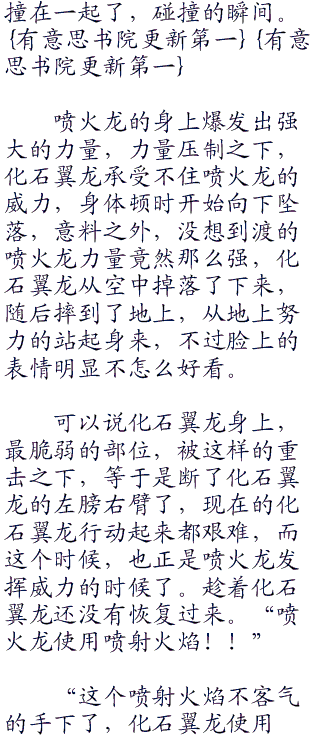 撞在一起了，碰撞的瞬间。
{有意思书院更新第一} {有意
思书院更新第一}
喷火龙的身上爆发出强
大的力量，力量压制之下，
化石翼龙承受不住喷火龙的
威力，身体顿时开始向下坠
落，意料之外，没想到渡的
喷火龙力量竟然那么强，化
石翼龙从空中掉落了下来，
随后摔到了地上，从地上努
力的站起身来，不过脸上的
表情明显不怎么好看。
可以说化石翼龙身上，
最脆弱的部位，被这样的重
击之下，等于是断了化石翼
龙的左膀右臂了，现在的化
石翼龙行动起来都艰难，而
这个时候，也正是喷火龙发
挥威力的时候了。趁着化石
翼龙还没有恢复过来。“喷
火龙使用喷射火焰！！”
“这个喷射火焰不客气
的手下了，化石翼龙使用